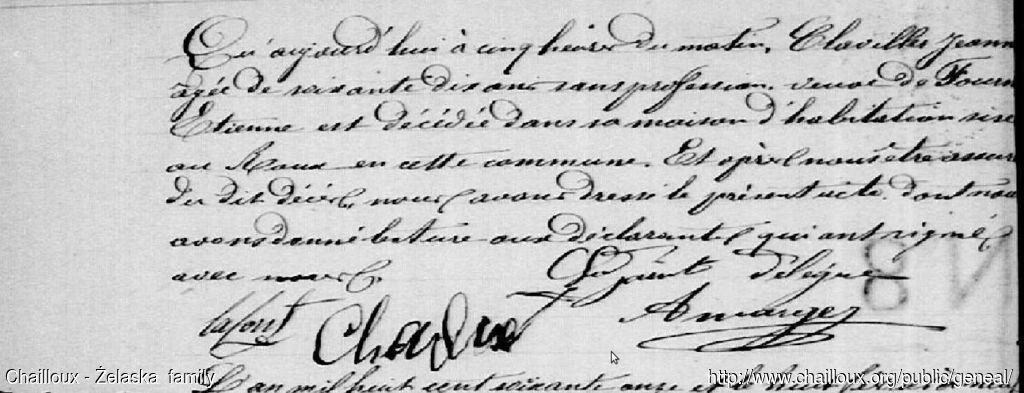 Qu'aujourd'hui à cinq heures du matin, Clavilles Jeann
agée de soixante dix ans sans profession, veuve de Fourn
Etienne est décédée dans sa maison d'habitation sise
au Roux en cette commune. Et après nous être assuré
du dit décès, nous avons dressé le présent acte dont nous
avons donné lecture aux déclarants qui ont signé
avec nous
délégué
Lafont
L'an mil huit cent soixante onze et
Chailloux - Želaska family
http://www.chailloux.org/public/geneal/